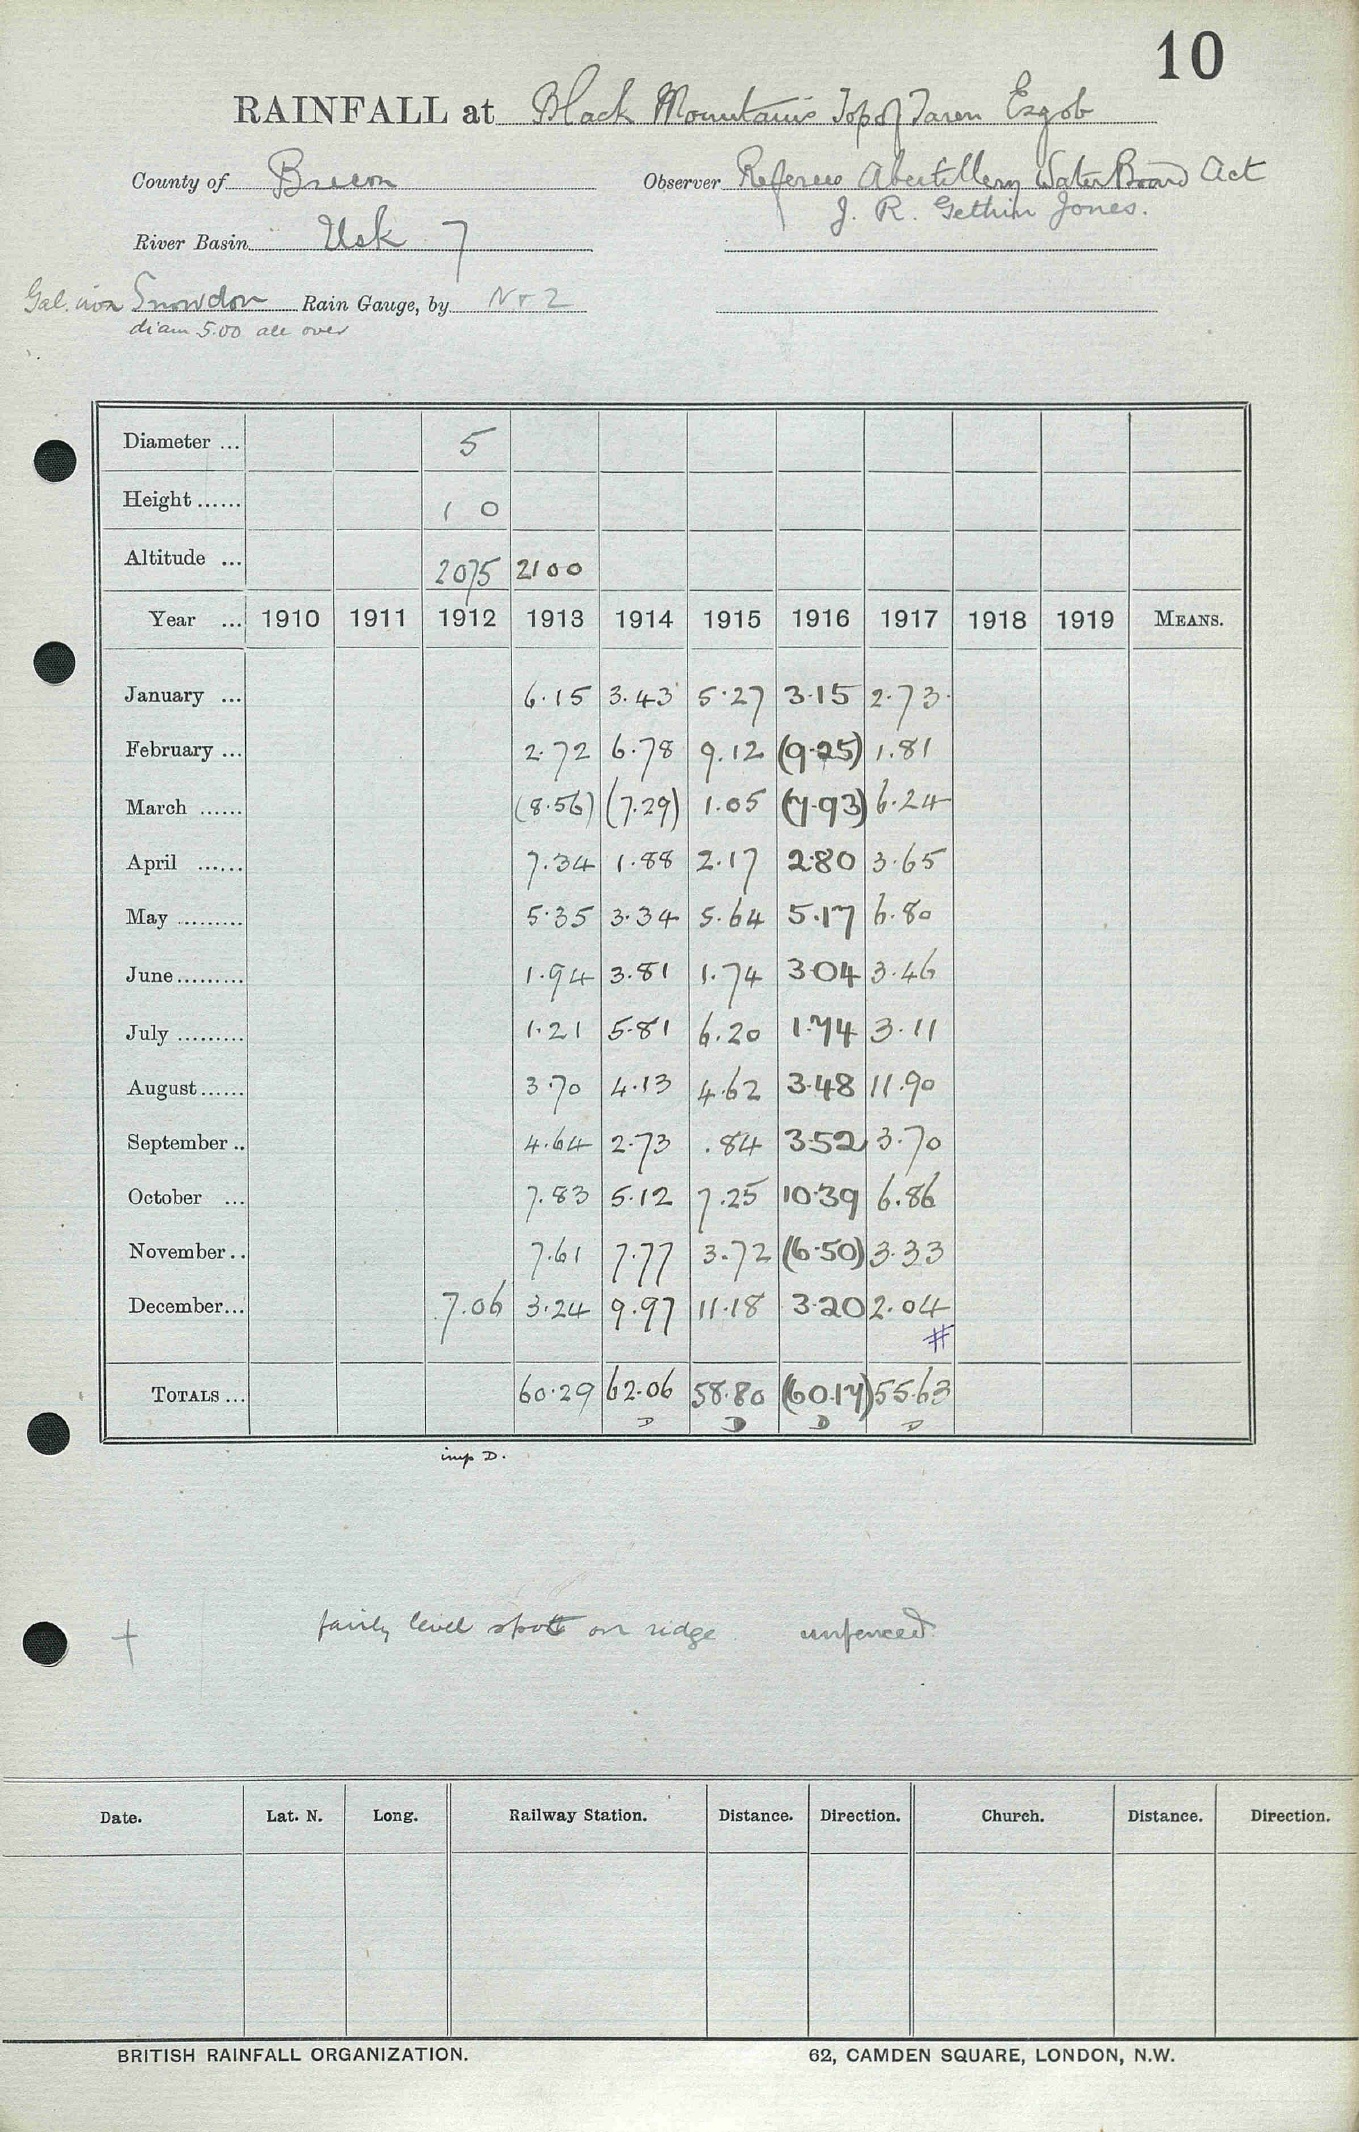 10
RAINFALL at Black Mountains Top of Taren Esgob
County of Brecon Observer Referees Abertillery Water Board Act
J. R. Gethin Jones.
River Basin Usk 7
Gal. iron Snowdon Rain Gauge, by No 2
diam 5.00 all over
Diameter ... 5
Height ...... 1 0
Altitude ... 2075 2100
Year ... 1910 1911 1912 1913 1914 1915 1916 1917 1918 1919 MEANS.
January ... 6.15 3.43 5.27 3.15 2.73
February ... 2.72 6.78 9.12 (9.25) 1.81
March ...... (8.56) (7.29) 1.05 (7.93) 6.24
April ...... 7.34 1.88 2.17 2.80 3.65
May ......... 5.35 3.34 5.64 5.17 6.80
June ......... 1.94 3.81 1.74 3.04 3.46
July ......... 1.21 5.81 6.20 1.74 3.11
August ...... 3.70 4.13 4.62 3.48 11.90
September .. 4.64 2.73 .84 3.52 3.70
October ... 7.83 5.12 7.25 10.39 6.86
November .. 7.61 7.77 3.72 (6.50) 3.33
December ... 7.06 3.24 9.97 11.18 3.20 2.04
#
TOTALS ... 60.29 62.06 58.80 (60.17) 55.63
D D D D
imp D.
† fairly level spot on ridge unfenced
Date. Lat. N. Long. Railway Station. Distance. Direction. Church. Distance. Direction.
BRITISH RAINFALL ORGANIZATION. 62, CAMDEN SQUARE, LONDON, N.W.